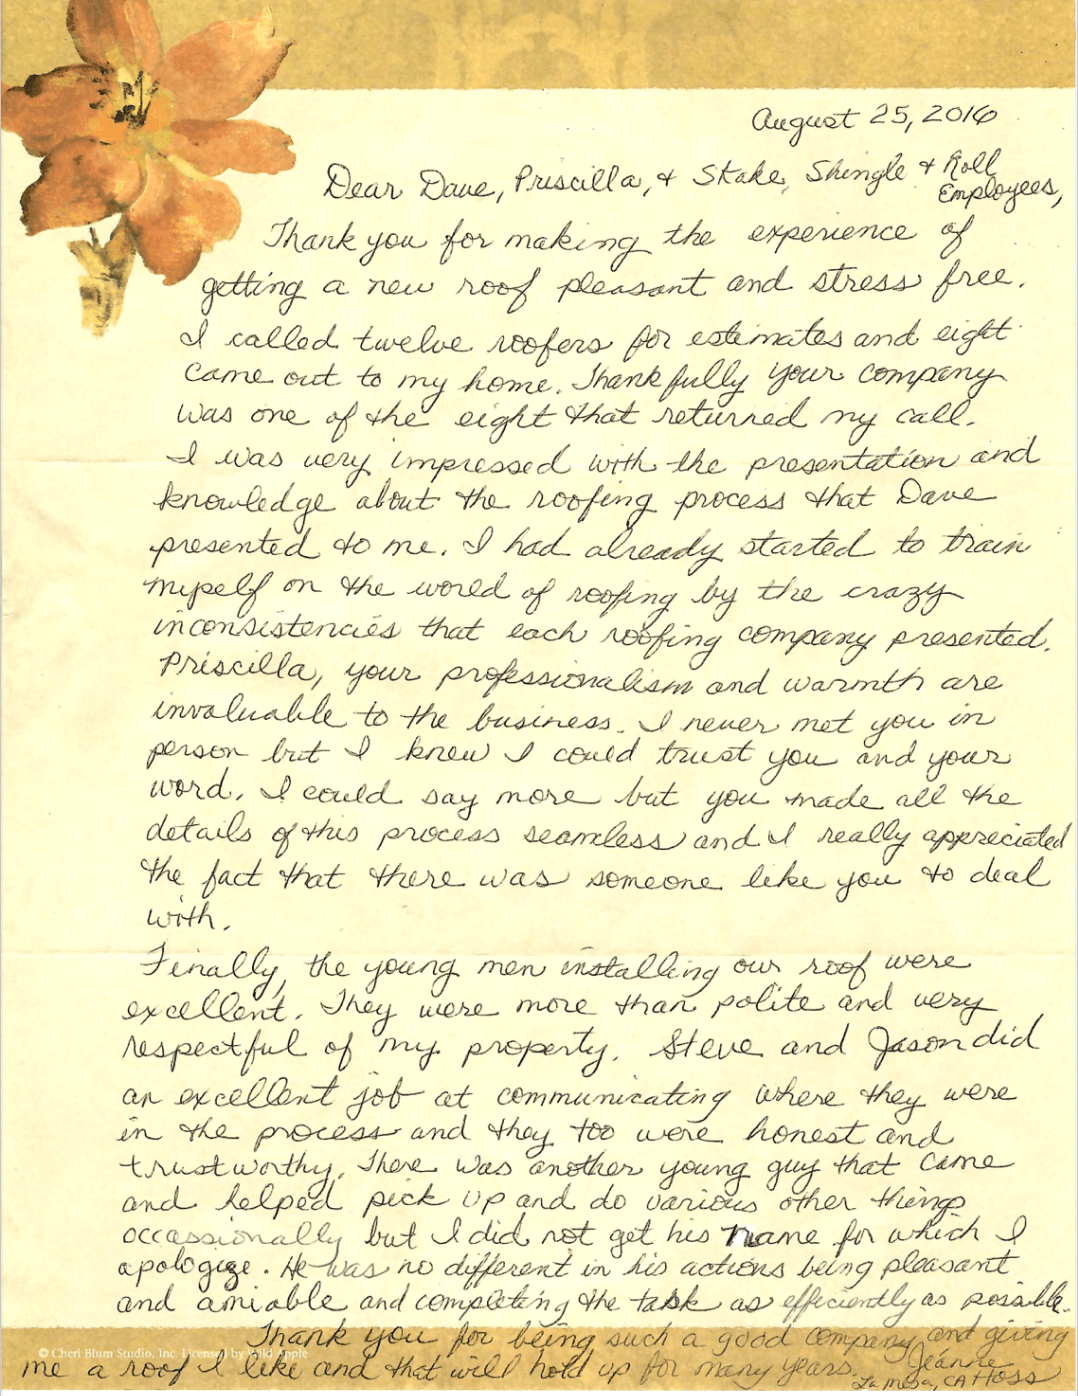 August 25, 2016
Dear Dave, Priscilla, & Stake, Shingle & Roll
Employees,
Thank you for making the experience of
getting a new roof pleasant and stress free.
I called twelve roofers for estimates and eight
came out to my home. Thankfully your company
was one of the eight that returned my call.
I was very impressed with the presentation and
knowledge about the roofing process that Dave
presented to me. I had already started to train
myself on the world of roofing by the crazy
inconsistencies that each roofing company presented.
Priscilla, your professionalism and warmth are
invaluable to the business. I never met you in
person but I knew I could trust you and your
word. I could say more but you made all the
details of this process seamless and I really appreciated
the fact that there was someone like you to deal
with.
Finally, the young men installing our roof were
excellent. They were more than polite and very
respectful of my property. Steve and Jason did
an excellent job at communicating where they were
in the process and they too were honest and
trustworthy. There was another young guy that came
and helped pick up and do various other things
occassionally but I did not get his name for which I
apologize. He was no different in his actions being pleasant
and amiable and completing the task as efficiently as possible.
Thank you for being such a good company and giving
me a roof I like and that will hold up for many years.
Jeanne Hoss
La Mesa, CA
© Cheri Blum Studio, Inc. Licensed by Wild Apple